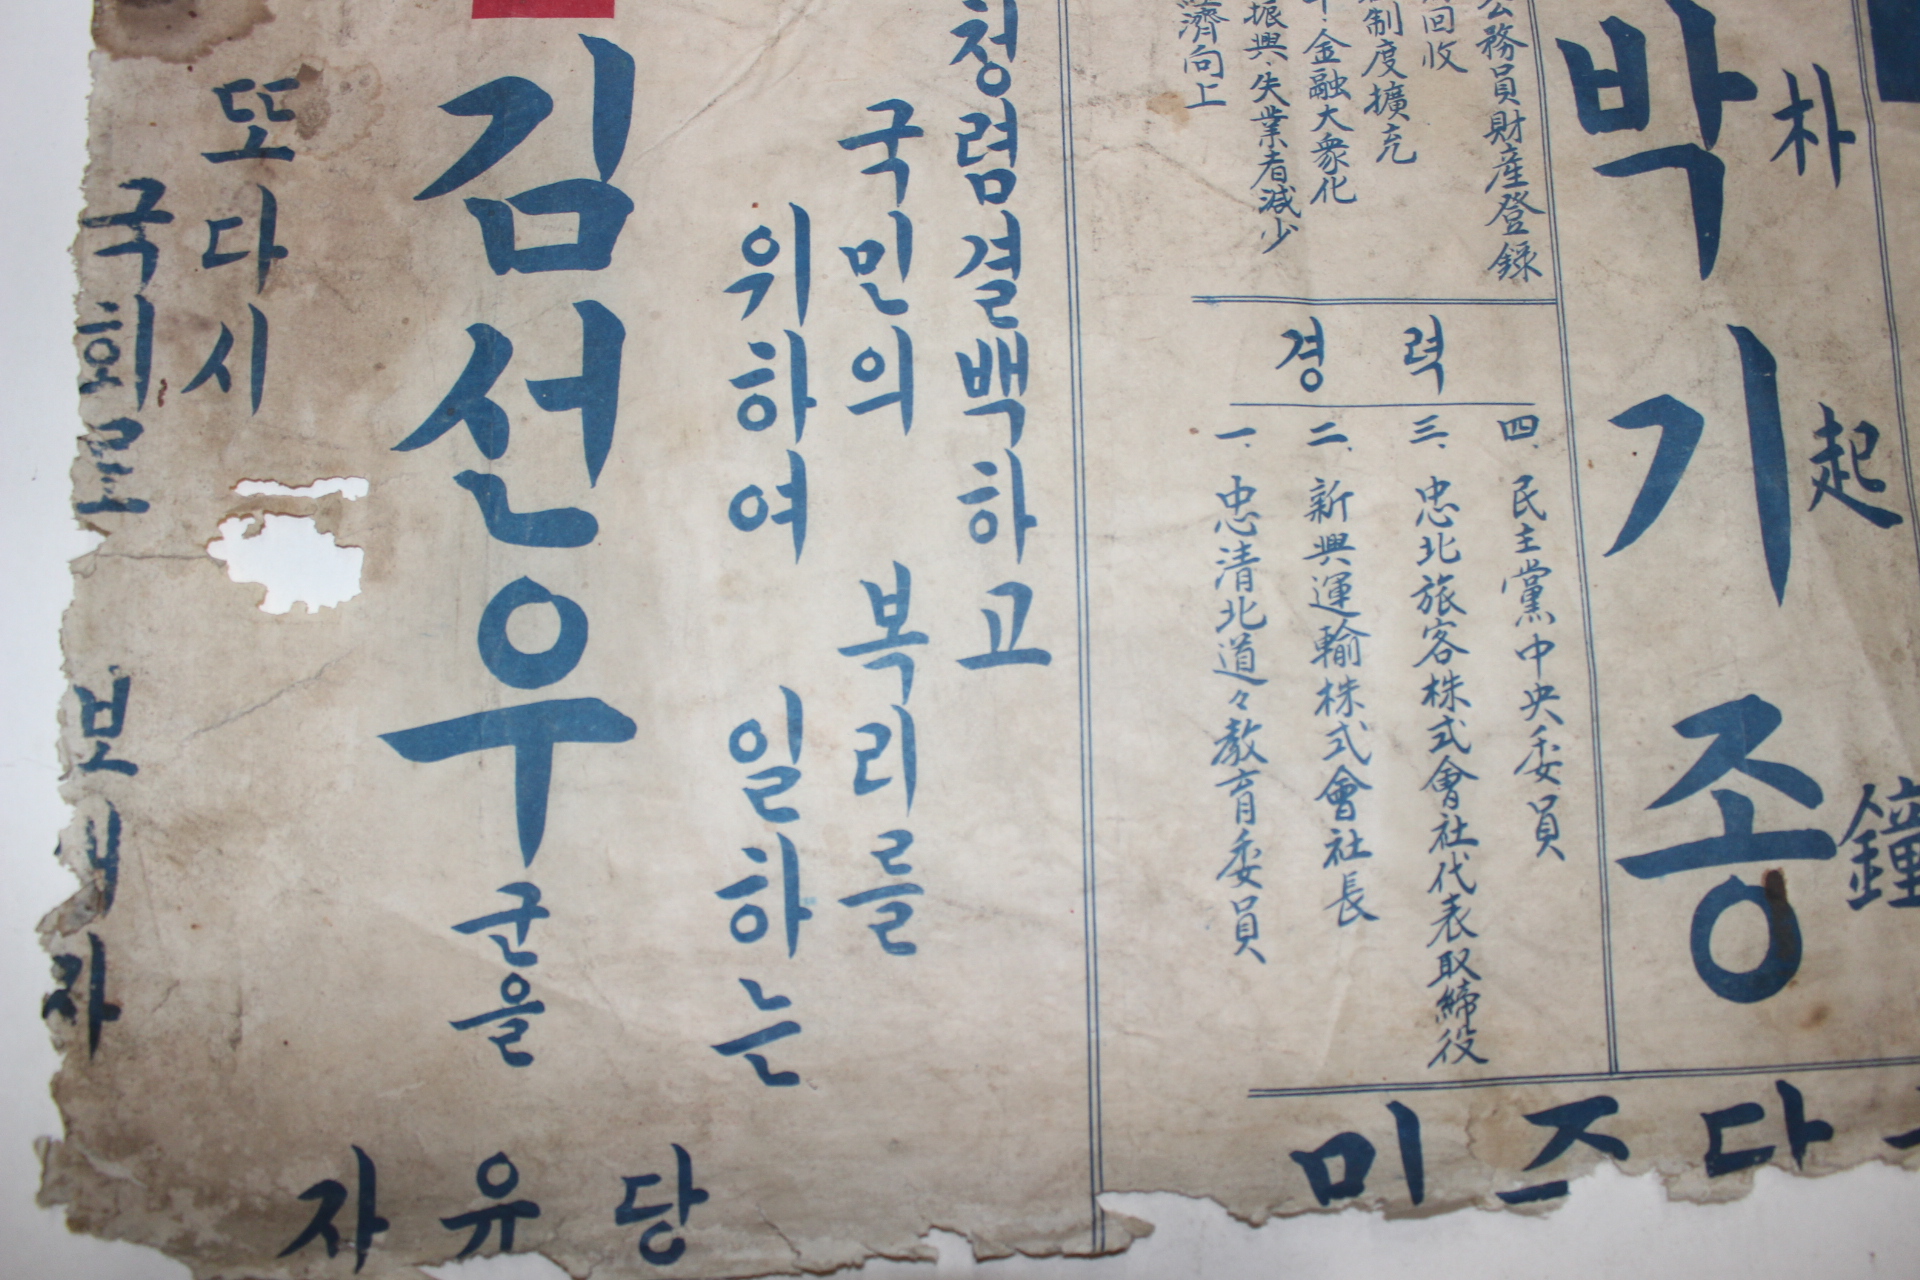 박기종
朴起鐘
濟向上
振興·失業者減少
金融大衆化
制度擴充
回收
公務員財産登錄
경력
一. 忠清北道々敎育委員
二. 新興運輸株式會社長
三. 忠北旅客株式會社代表取締役
四. 民主黨中央委員
민주당
청렴결백하고
국민의 복리를
위하여 일하는
김선우 군을
또다시
국회로 보내자
자유당